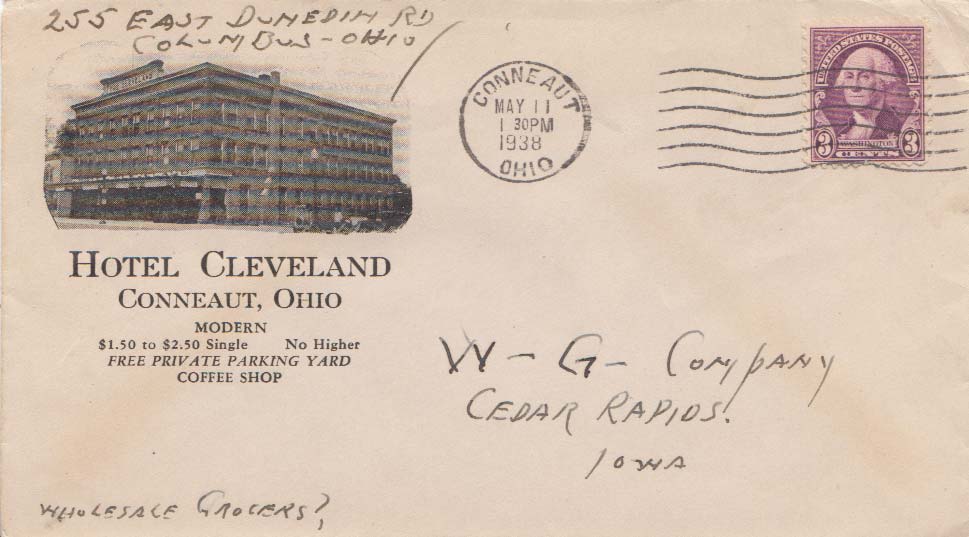 255 EAST DUNEDIN RD
COLUMBUS - OHIO
HOTEL CLEVELAND
CONNEAUT, OHIO
MODERN
$1.50 to $2.50 Single No Higher
FREE PRIVATE PARKING YARD
COFFEE SHOP
CONNEAUT
MAY 11
1 30PM
1938
OHIO
UNITED STATES POSTAGE
3 WASHINGTON 3
CENTS
W - G - Company
CEDAR RAPIDS.
IOWA
WHOLESALE GROCERS?